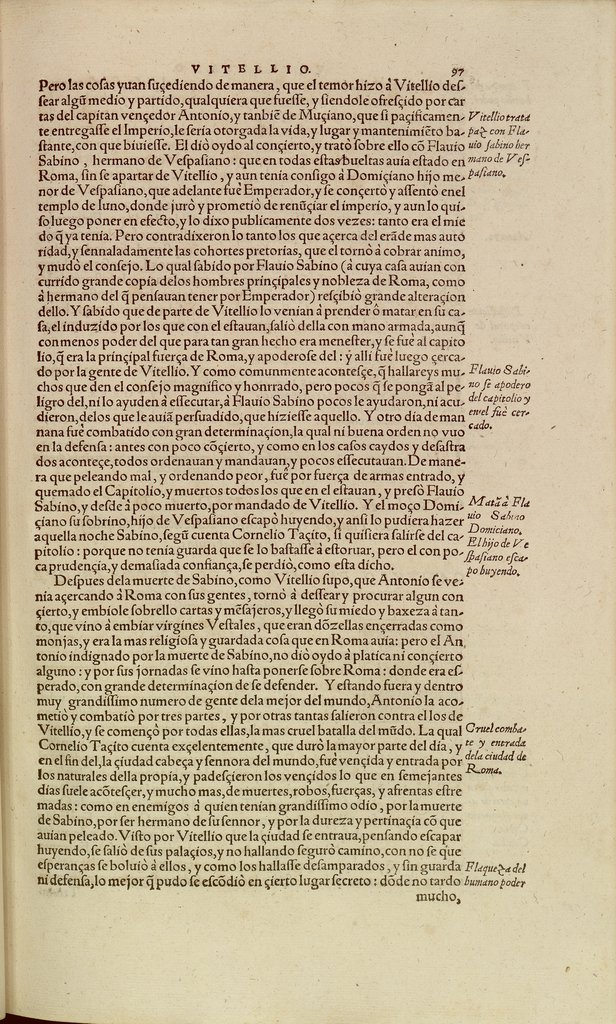 VITELLIO.
97
Pero las cosas yuan suçediendo de manera, que el temor hizo à Vitellio des-
sear algũ medio y partido, qualquiera que fuesse, y siendole ofresçido por car
tas del capitan vençedor Antonio, y tambiẽ de Muçiano, que si paçificamen-
te entregasse el Imperio, le seria otorgada la vida, y lugar y mantenimiẽto ba-
stante, con que biuiesse. El diò oydo al conçierto, y tratò sobre ello cõ Flauio
Sabino, hermano de Vespasiano: que en todas estas bueltas auia estado en
Roma, sin se apartar de Vitellio, y aun tenia consigo à Domiçiano hijo me-
nor de Vespasiano, que adelante fue Emperador, y se conçertò y assentò en el
templo de Iuno, donde jurò y prometiò de renũçiar el imperio, y aun lo qui-
so luego poner en efecto, y lo dixo publicamente dos vezes: tanto era el mie
do q̃ ya tenia. Pero contradixeron lo tanto los que açerca del erã de mas auto
ridad, y sennaladamente las cohortes pretorias, que el tornò à cobrar animo,
y mudò el consejo. Lo qual sabido por Flauio Sabino (à cuya casa auian con
currido grande copia de los hombres prinçipales y nobleza de Roma, como
à hermano del q̃ pensauan tener por Emperador) resçibiò grande alteraçion
dello. Y sabido que de parte de Vitellio lo venian à prender ò matar en su ca-
sa, el induzido por los que con el estauan, saliò della con mano armada, aunq̃
con menos poder del que para tan gran hecho era menester, y se fuè al capito
lio, q̃ era la prinçipal fuerça de Roma, y apoderose del: y alli fuè luego çerca-
do por la gente de Vitellio. Y como comunmente acontesçe, q̃ hallareys mu-
chos que den el consejo magnifico y honrrado, pero pocos q̃ se pongã al pe-
ligro del, ni lo ayuden à essecutar, à Flauio Sabino pocos le ayudaron, ni acu-
dieron, de los que le auiã persuadido, que hiziesse aquello. Y otro dia de man
nana fuè combatido con gran determinaçion, la qual ni buena orden no vuo
en la defensa: antes con poco cõçierto, y como en los casos caydos y desastra
dos aconteçe, todos ordenauan y mandauan, y pocos essecutauan. De mane-
ra que peleando mal, y ordenando peor, fuè por fuerça de armas entrado, y
quemado el Capitolio, y muertos todos los que en el estauan, y preso Flauio
Sabino, y desde à poco muerto, por mandado de Vitellio. Y el moço Domi-
çiano su sobrino, hijo de Vespasiano escapò huyendo, y ansi lo pudiera hazer
aquella noche Sabino, segũ cuenta Cornelio Taçito, si quisiera salirse del ca-
pitolio: porque no tenia guarda que se lo bastasse à estoruar, pero el con po-
ca prudençia, y demasiada confiança, se perdiò, como esta dicho.
Despues de la muerte de Sabino, como Vitellio supo, que Antonio se ve-
nia açercando à Roma con sus gentes, tornò à dessear y procurar algun con
çierto, y embiole sobrello cartas y mẽsajeros, y llegò su miedo y baxeza à tan-
to, que vino à embiar virgines Vestales, que eran dõzellas ençerradas como
monjas, y era la mas religiosa y guardada cosa que en Roma auia: pero el An
tonio indignado por la muerte de Sabino, no diò oydo à platica ni conçierto
alguno: y por sus jornadas se vino hasta ponerse sobre Roma: donde era es-
perado, con grande determinaçion de se defender. Y estando fuera y dentro
muy grandissimo numero de gente de la mejor del mundo, Antonio la aco-
metiò y combatiò por tres partes, y por otras tantas salieron contra el los de
Vitellio, y se començò por todas ellas, la mas cruel batalla del mũdo. La qual
Cornelio Taçito cuenta exçelentemente, que durò la mayor parte del dia, y
en el fin del, la çiudad cabeça y sennora del mundo, fuè vençida y entrada por
los naturales della propia, y padesçieron los vençidos lo que en semejantes
dias suele acõtesçer, y mucho mas, de muertes, robos, fuerças, y afrentas estre
madas: como en enemigos à quien tenian grandissimo odio, por la muerte
de Sabino, por ser hermano de su sennor, y por la dureza y pertinaçia cõ que
auian peleado. Visto por Vitellio que la çiudad se entraua, pensando escapar
huyendo, se saliò de sus palaçios, y no hallando segurò camino, con no se que
esperanças se boluiò à ellos, y como los hallasse desamparados, y sin guarda
ni defensa, lo mejor q̃ pudo se escõdiò en çierto lugar secreto: dõde no tardo
mucho,
Vitellio trata
paz con Fla-
uio sabino her
mano de Ves-
pasiano.
Flauio Sabi-
no se apodero
del capitolio y
en el fuè cer-
cado.
Matã à Fla
uio Sabino
Domiciano.
El hijo de Ve
spasiano esca-
po huyendo.
Cruel comba-
te y entrada
de la ciudad de
Roma.
Flaqueza del
humano poder